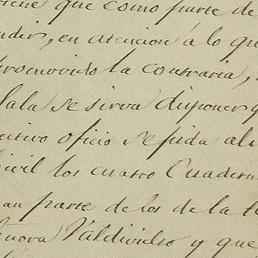 que como parte de
en atencion á lo qu
promovido la contraria,
Sala se sirva disponer q
ectivo oficio se pida al
ivil los cuatro Cuadern
an parte de los de la t
Valdivielso y que